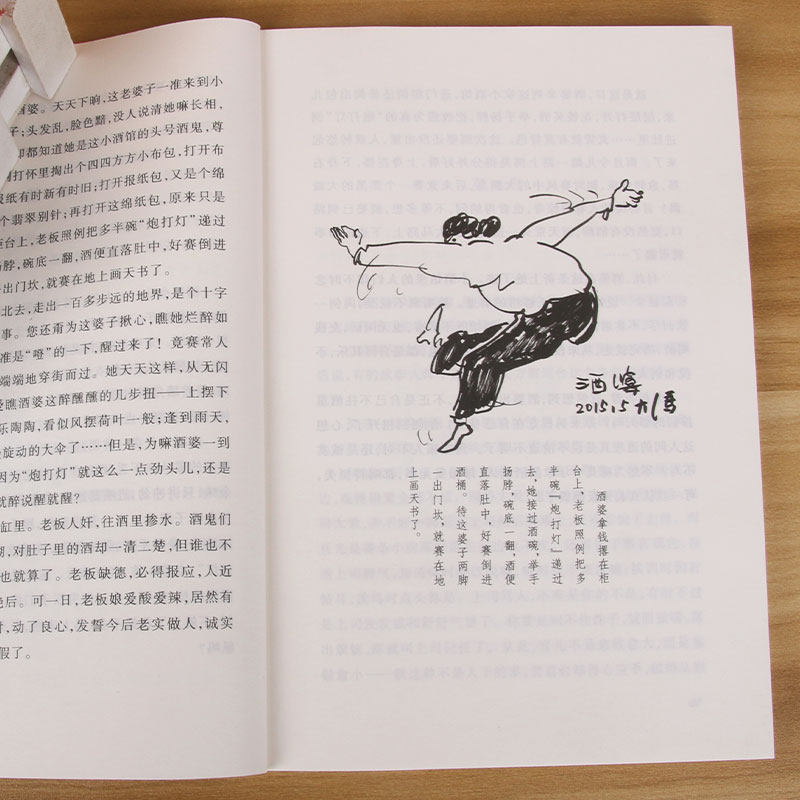 酒婆。天天下晌，这老婆子一准来到小
子；头发乱，脸色黯，没人说清她嘛长相，
却都知道她是这小酒馆的头号酒鬼，尊
打怀里掏出个四四方方小布包，打开布
报纸有时新有时旧；打开报纸包，又是个绵
个翡翠别针；再打开这绵纸包，原来只是
台上，老板照例把多半碗“炮打灯”递过
扬脖，碗底一翻，酒便直落肚中，好赛倒进
出门坎，就赛在地上画天书了。
北去，走出一百多步远的地界，是个十字
事。您还甭为这婆子揪心，瞧她烂醉如
准是“噔”的一下，醒过来了！竟赛常人
端端地穿街而过。她天天这样，从无闪
爱瞧酒婆这醉醺醺的几步扭——上摆下
乐陶陶，看似风摆荷叶一般；逢到雨天，
旋动的大伞了……但是，为嘛酒婆一到
因为“炮打灯”就这么一点劲头儿，还是
就醉说醒就醒？
缸里。老板人奸，往酒里掺水。酒鬼们
，对肚子里的酒却一清二楚，但谁也不
也就算了。老板缺德，必得报应，人近
绝后。可一日，老板娘爱酸爱辣，居然有
，动了良心，发誓今后老实做人，诚实
假了。
酒婆
2015.5
酒婆拿钱撂在柜
台上，老板照例把多
半碗“炮打灯”递过
去，她接过酒碗，举手
扬脖，碗底一翻，酒便
直落肚中，好赛倒进
酒桶。待这婆子两脚
一出门坎，就赛在地
上画天书了。